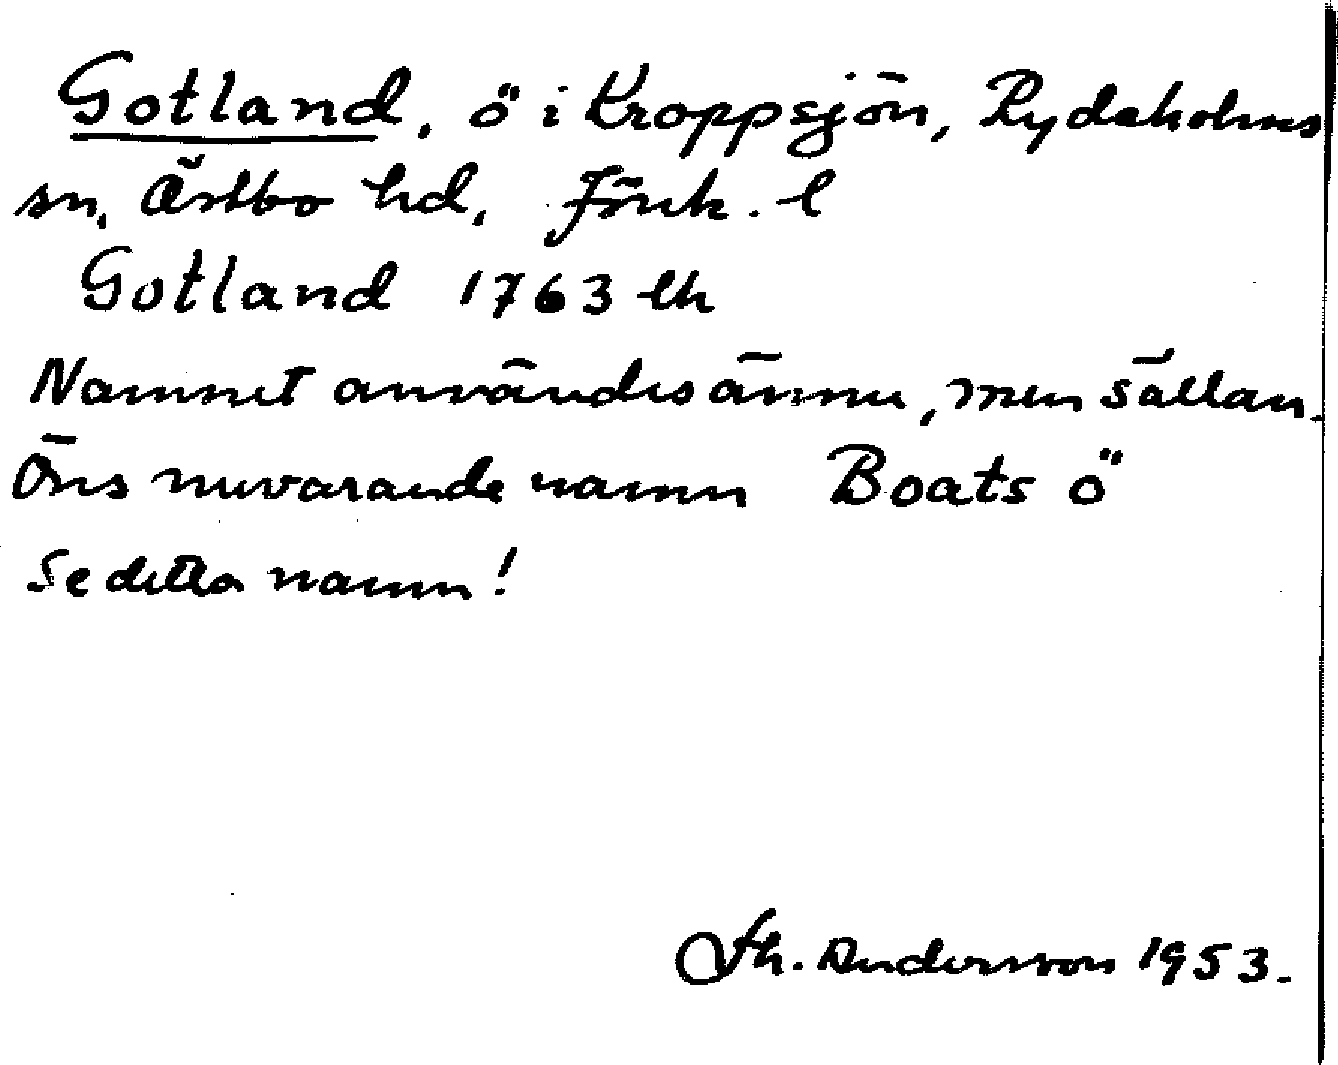 Gotland, ö i Kroppsjön, Rydaholms
sn, Östbo hd, Jönk. l
Gotland 1763 lh
Namnet användes ännu, men sällan.
Öns nuvarande namn Boats ö
Se detta namn!
Th. Andersson 1953.